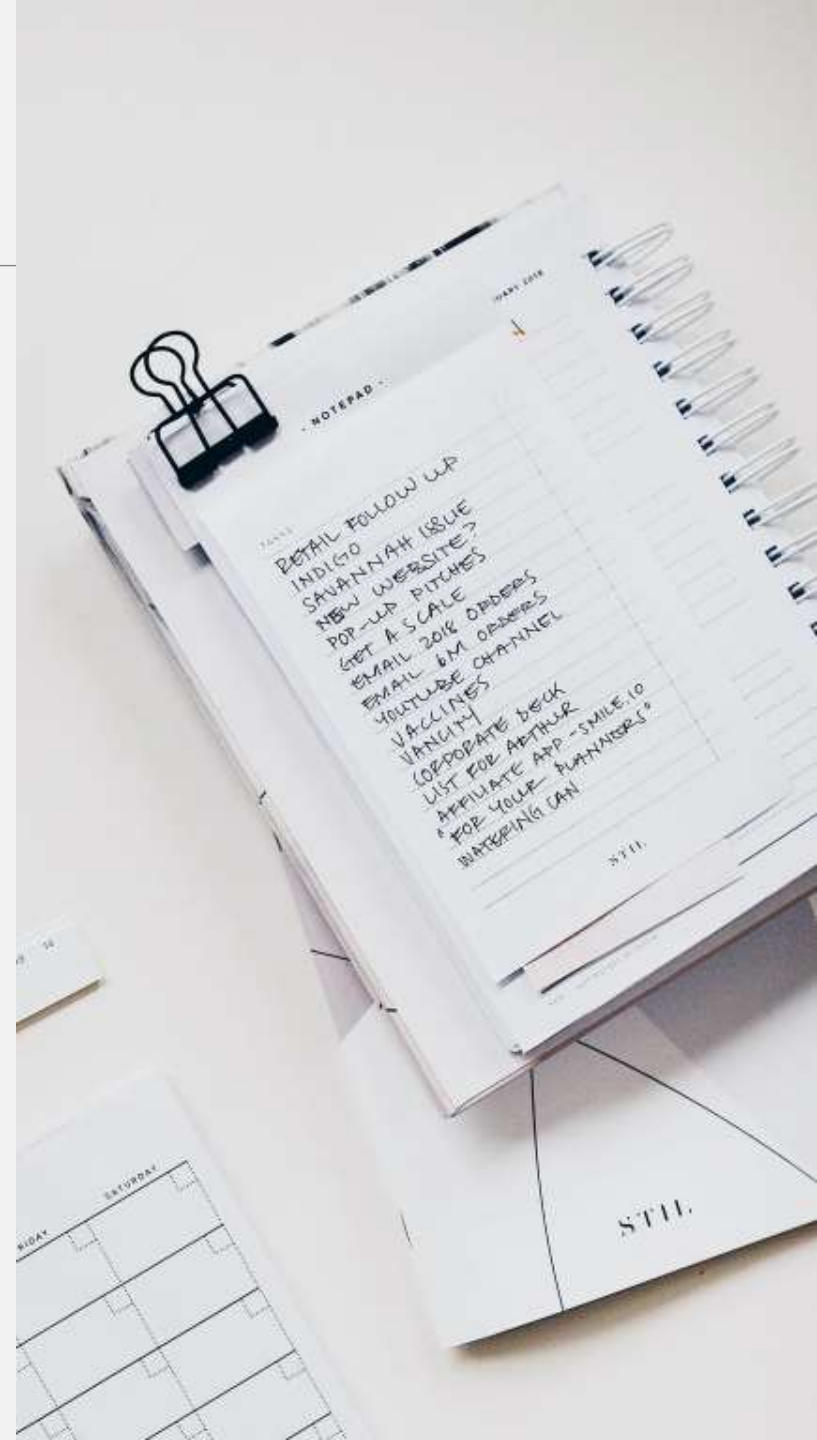 - NOTEPAD -
TASKS
RETAIL FOLLOW UP
INDIGO
SAVANNAH ISSUE
NEW WEBSITE?
POP-UP PITCHES
GET A SCALE
EMAIL 2018 ORDERS
EMAIL 6M ORDERS
YOUTUBE CHANNEL
VACCINES
VANCITY
CORPORATE DECK
LIST FOR ARTHUR
AFFILIATE APP - SMILE.IO
"FOR YOUR PLANNERS"
WATERING CAN
STIL
STIL
SATURDAY